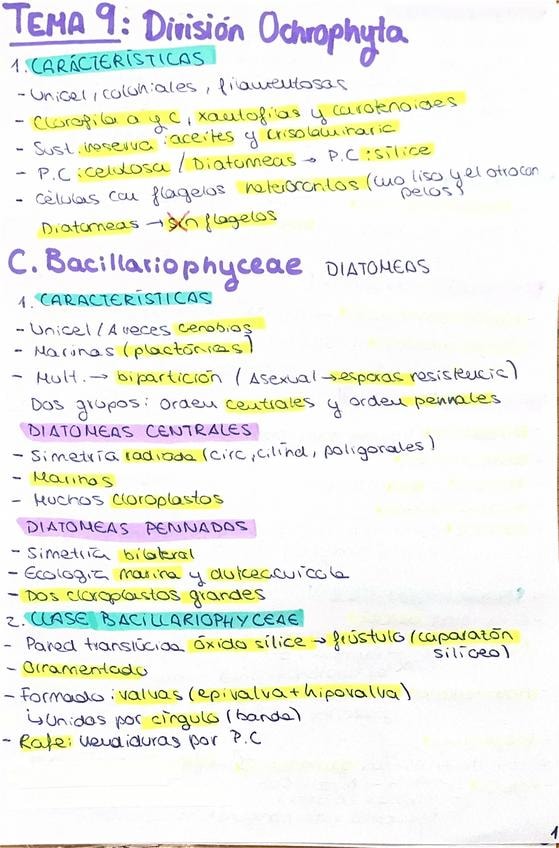 TEMA 9: División Ochrophyta
1. CARÁCTERÍSTICAS
- Unicel, coloniales, filamentosas
- Clorofila a y c, xantofilas y carotenoides
- Sust. reserva: aceites y crisolaminaric
- P.C: celulosa / Diatomeas → P.C: sílice
- Células con flagelos heterorontos (uno liso y el otro con
pelos)
Diatomeas → sin flagelos
C. Bacillariophyceae DIATOMEAS
1. CARACTERÍSTICAS
- Unicel / A veces cenobios
- Marinas (plactónicas)
- Mult. → bipartición (Asexual → esporas resistencia)
Dos grupos: orden centrales y orden pennales
DIATOMEAS CENTRALES
- Simetría radiada (circ, cilínd, poligonales)
- Marinas
- Muchos cloroplastos
DIATOMEAS PENNADAS
- Simetría bilateral
- Ecología marina y dulceacuícola
- Dos cloroplastos grandes
2. CLASE BACILLARIOPHYCEAE
- Pared translúcida óxido sílice → frústulo (caparazón
silíceo)
- Oramentado
- Formado: valvas (epivalva + hipovalva)
↳ Unidas por cíngulo (banda)
- Rafe: hendiduras por P.C
1